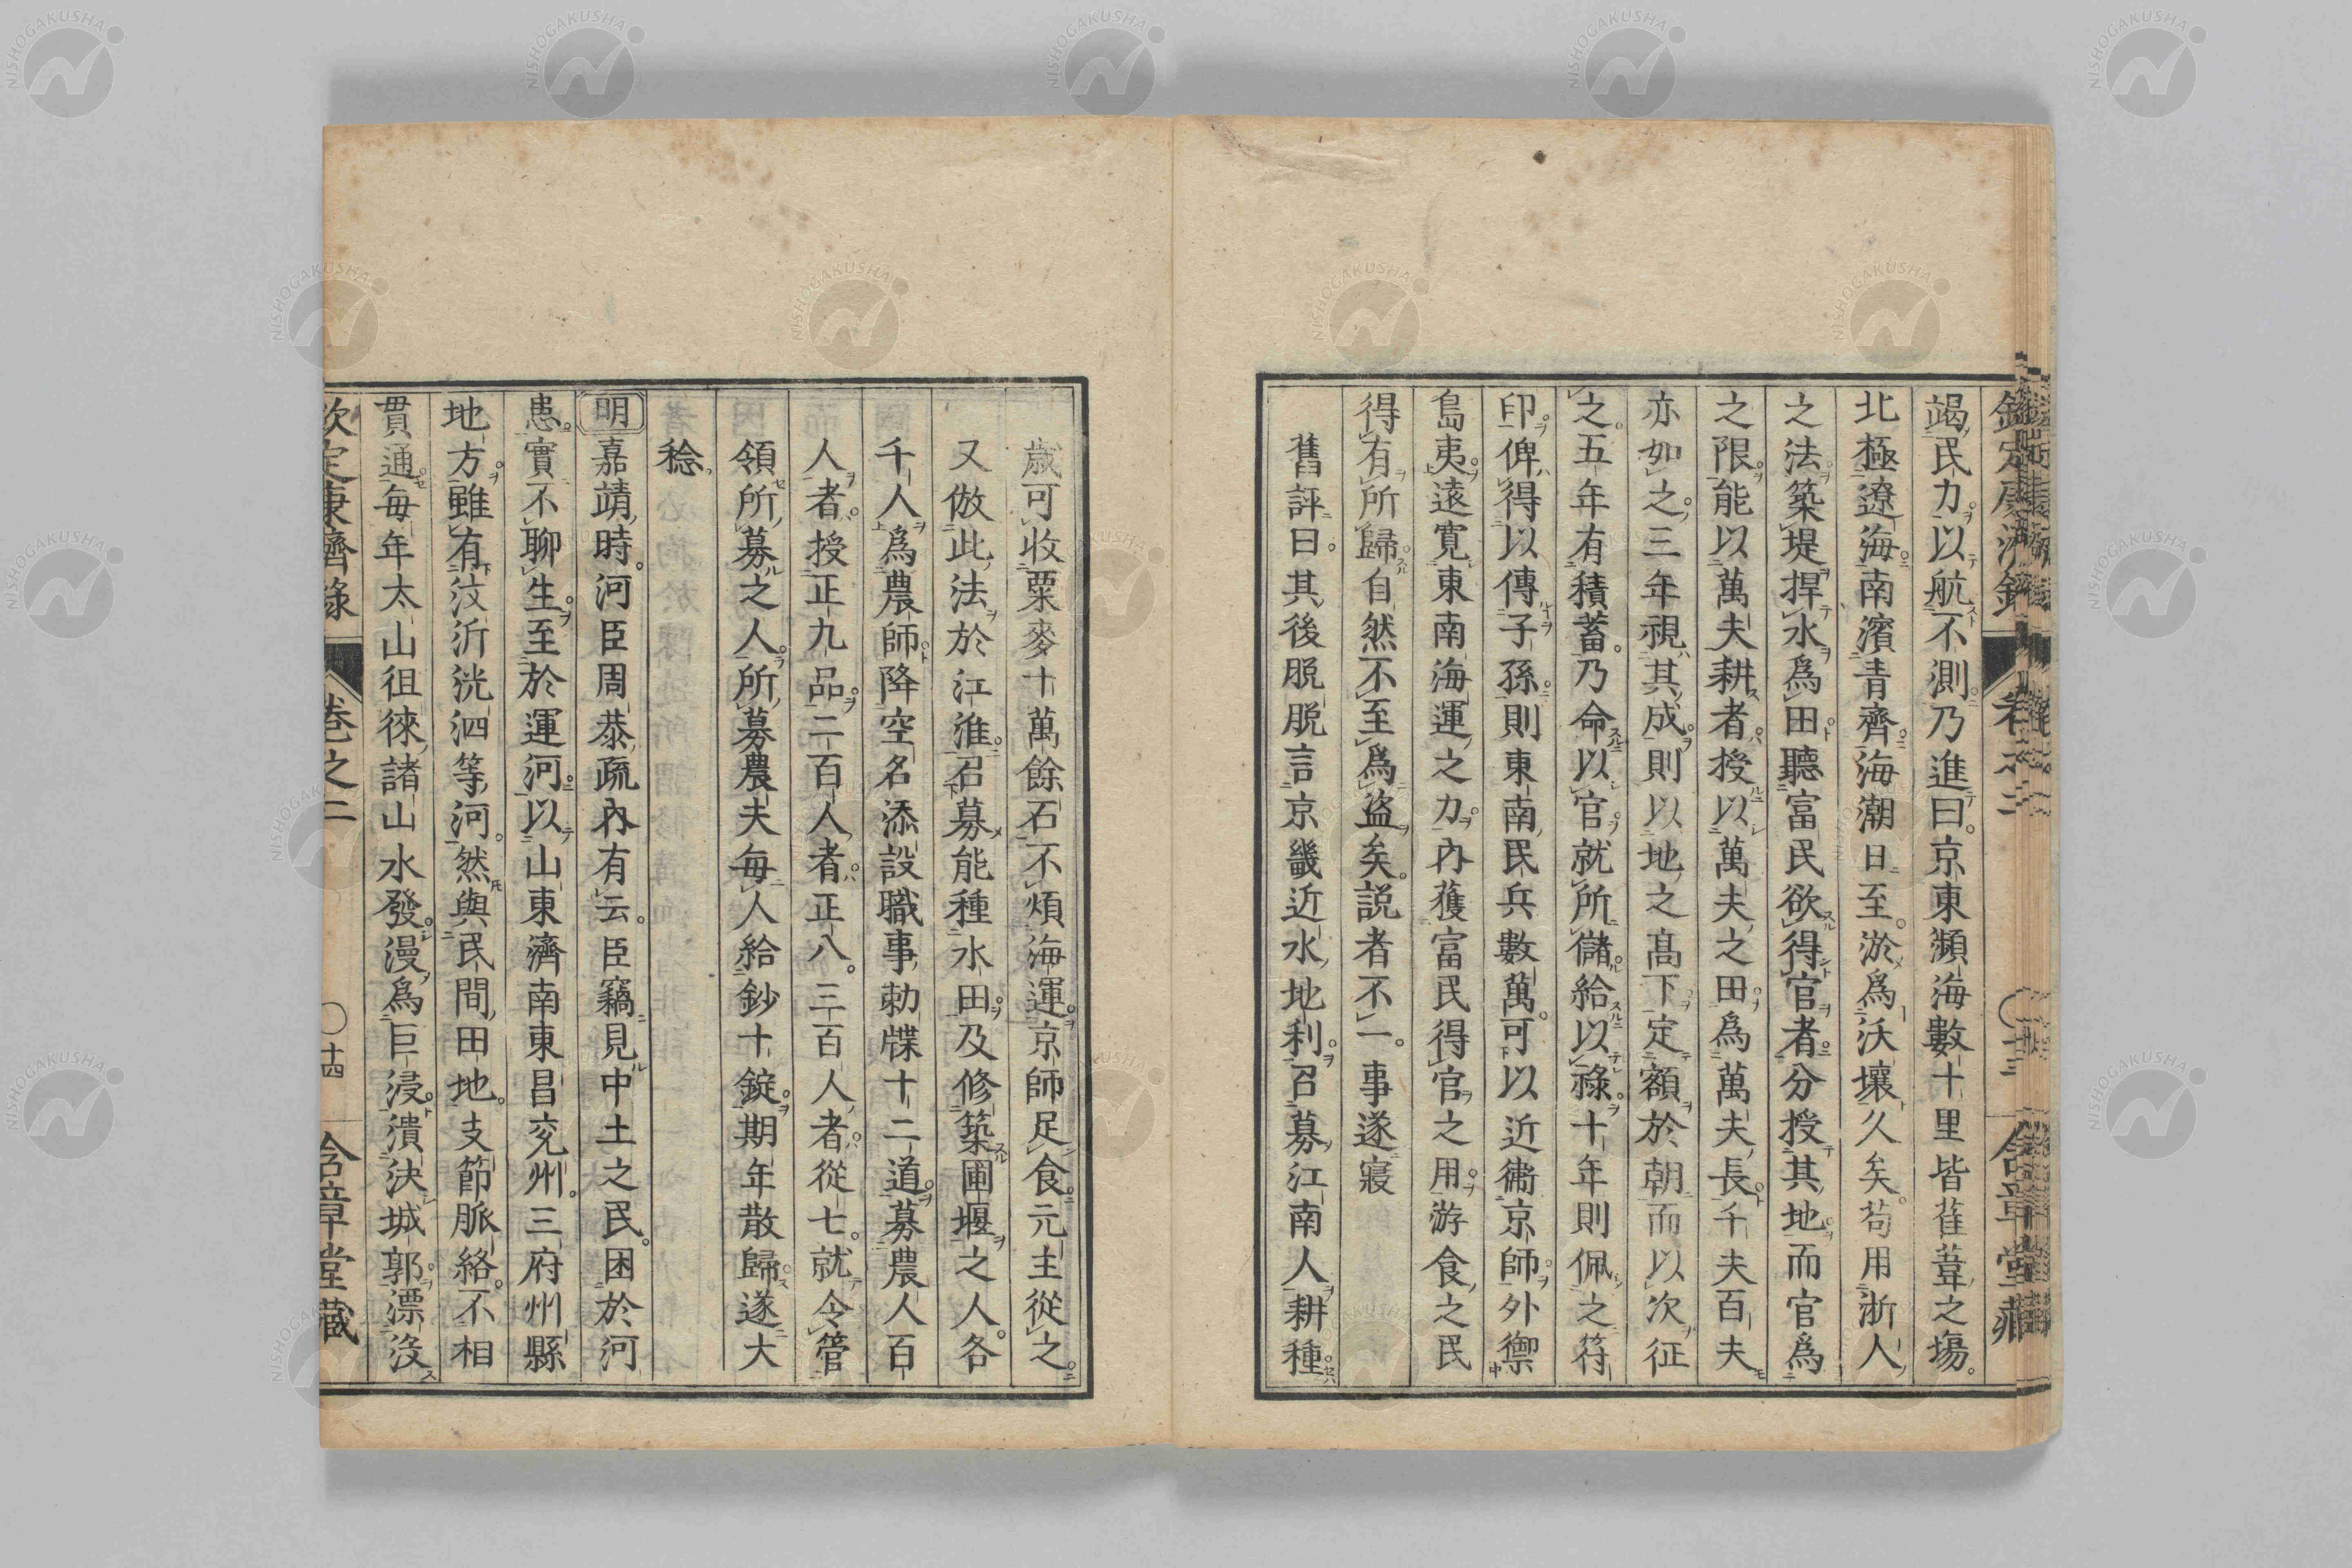 竭民力以航不測乃進曰京東瀕海數十里皆萑葦之塲
北極遼海南濱青齊海潮日至淤爲沃壤久矣苟用浙人
之法築堤捍水爲田聽富民欲得官者分授其地而官爲
之限能以萬夫耕者授以萬夫之田爲萬夫長千夫百夫
亦如之三年視其成則以地之髙下定額於朝而以次征
之五年有積蓄乃命以官就所儲給以祿十年則佩之符
印俾得以傳子孫則東南民兵數萬可以近衞京師外禦
島夷遠寛東南海運之力内獲富民得官之用游食之民
得有所歸自然不至爲盜矣説者不一事遂寢
舊評曰其後脱脱言京畿近水地利召募江南人耕種
歲可收粟麥十萬餘石不煩海運京師足食元主從之
又倣此法於江淮召募能種水田及修築圍堰之人各
千人爲農師降空名添設職事勅牒十二道募農人百
人者授正九品二百人者正八三百人者從七就令管
領所募之人所募農夫毎人給鈔十錠期年散歸遂大
稔
明嘉靖時河臣周恭疏内有云臣竊見中土之民困於河
患實不聊生至於運河以山東濟南東昌兖州三府州縣
地方雖有汶沂洸泗等河然與民間田地支節脈絡不相
貫通毎年太山徂徠諸山水發漫爲巨浸潰決城郭漂沒
欽定康濟錄 卷之二 〇十四 含章堂藏